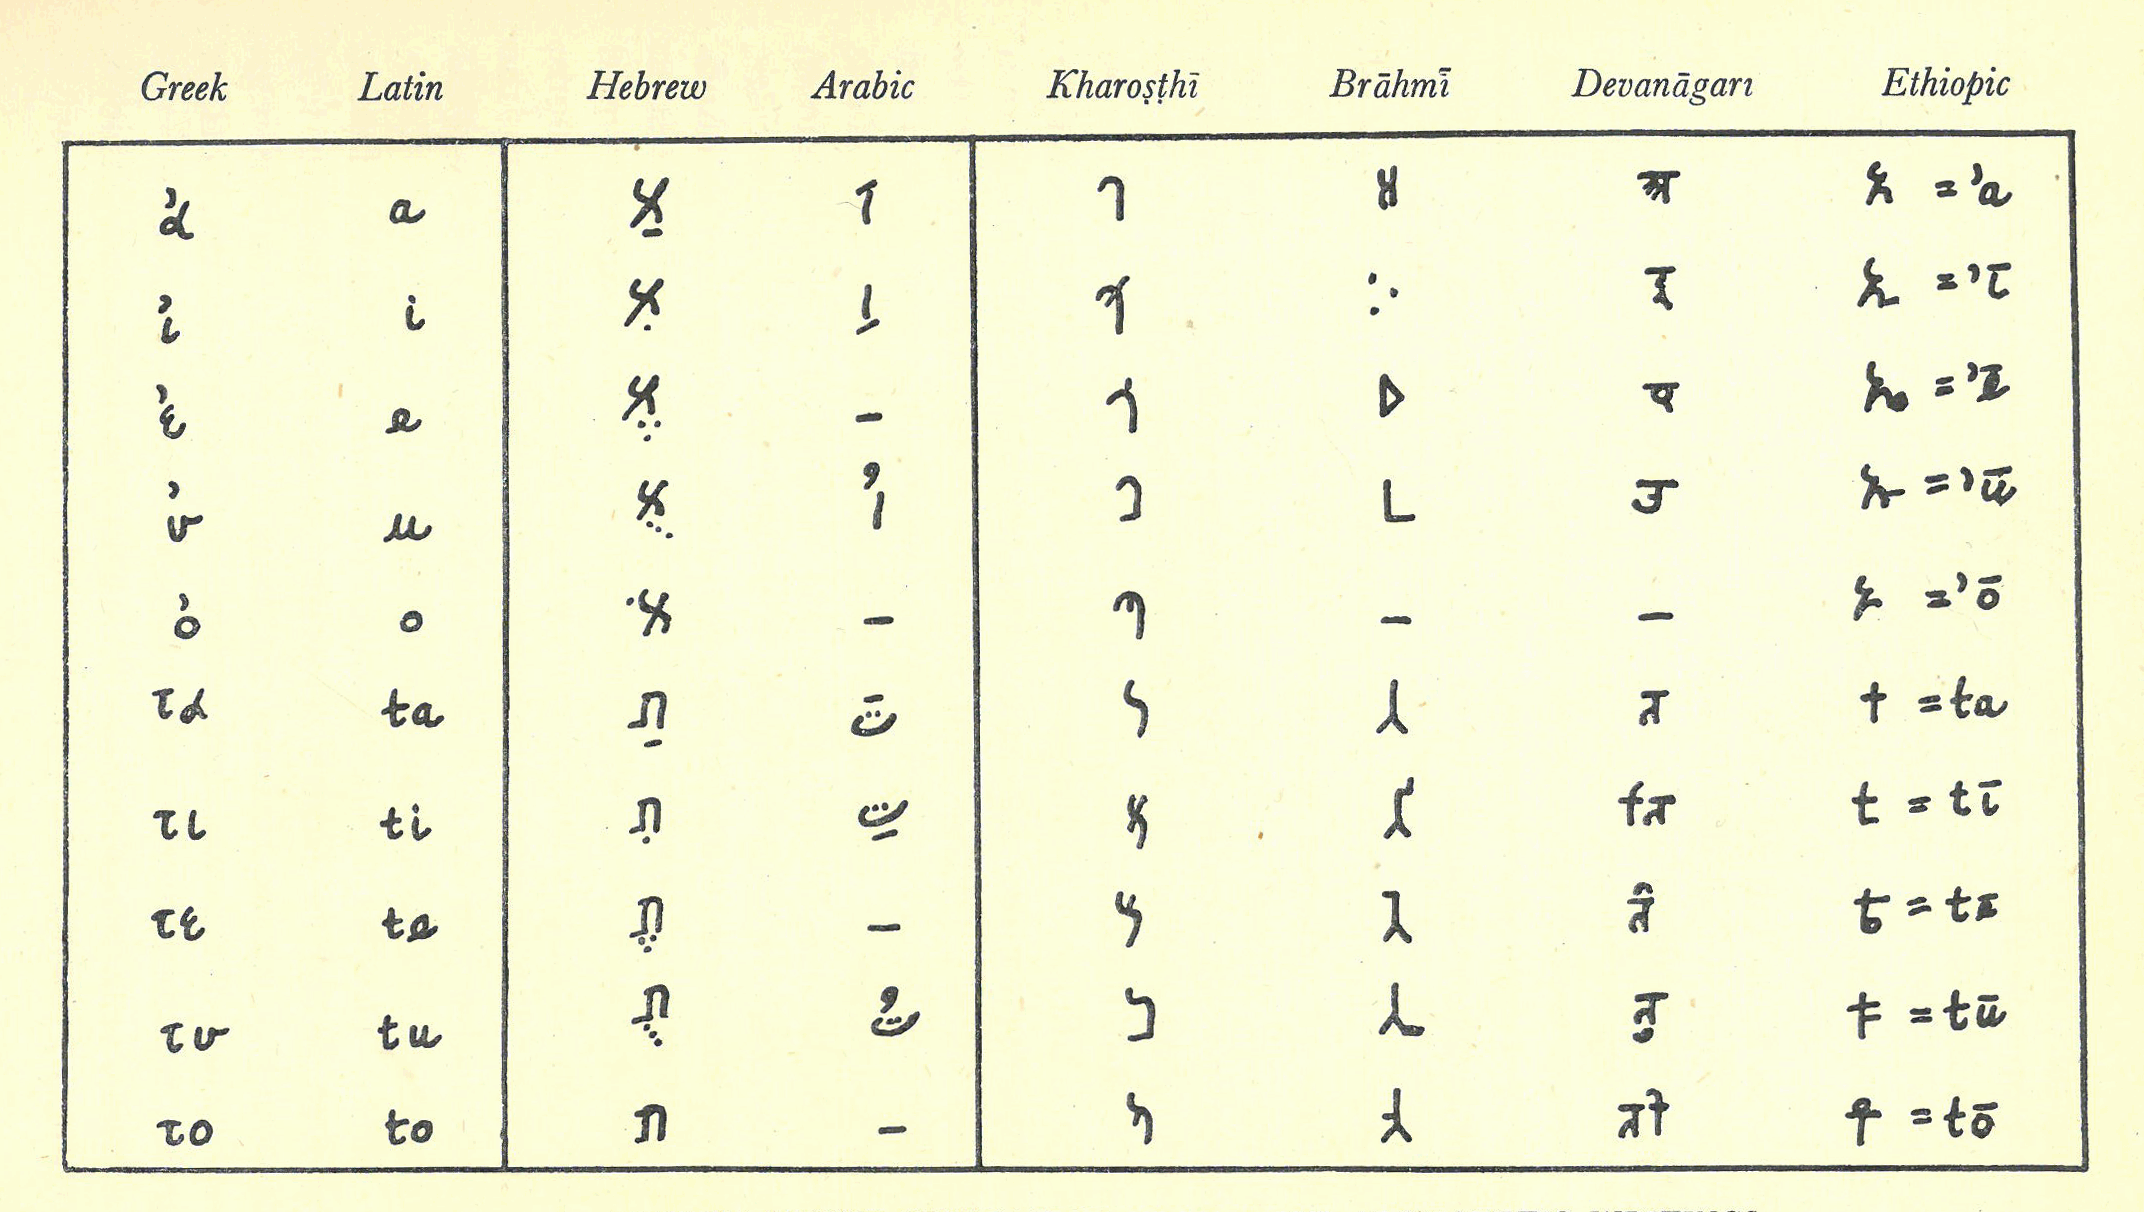 Greek Latin Hebrew Arabic Kharoṣṭhī Brāhmī Devanāgarı Ethiopic
ἀ a אַ اَ 𐨀 𑀅 अ አ = ʼa
ἰ i אִ اِ 𐨀𐨁 𑀇 इ ኢ = ʼī
ἐ e אֶ – 𐨀𐨅 𑀏 ए ኤ = ʼē
ὐ u אֻ اُ 𐨀𐨂 𑀉 उ ኡ = ʼū
ὀ o אֹ – 𐨀𐨆 – – ኦ = ʼō
τα ta תַ تَ 𐨟 𑀢 त ተ = ta
τι ti תִ تِ 𐨟𐨁 𑀢𑀺 ति ቲ = tī
τε te תֶ – 𐨟𐨅 𑀢𑁂 ते ቴ = tē
τυ tu תֻ تُ 𐨟𐨂 𑀢𑀼 तु ቱ = tū
το to ת – 𐨟𐨆 𑀢𑁄 तो ቶ = tō